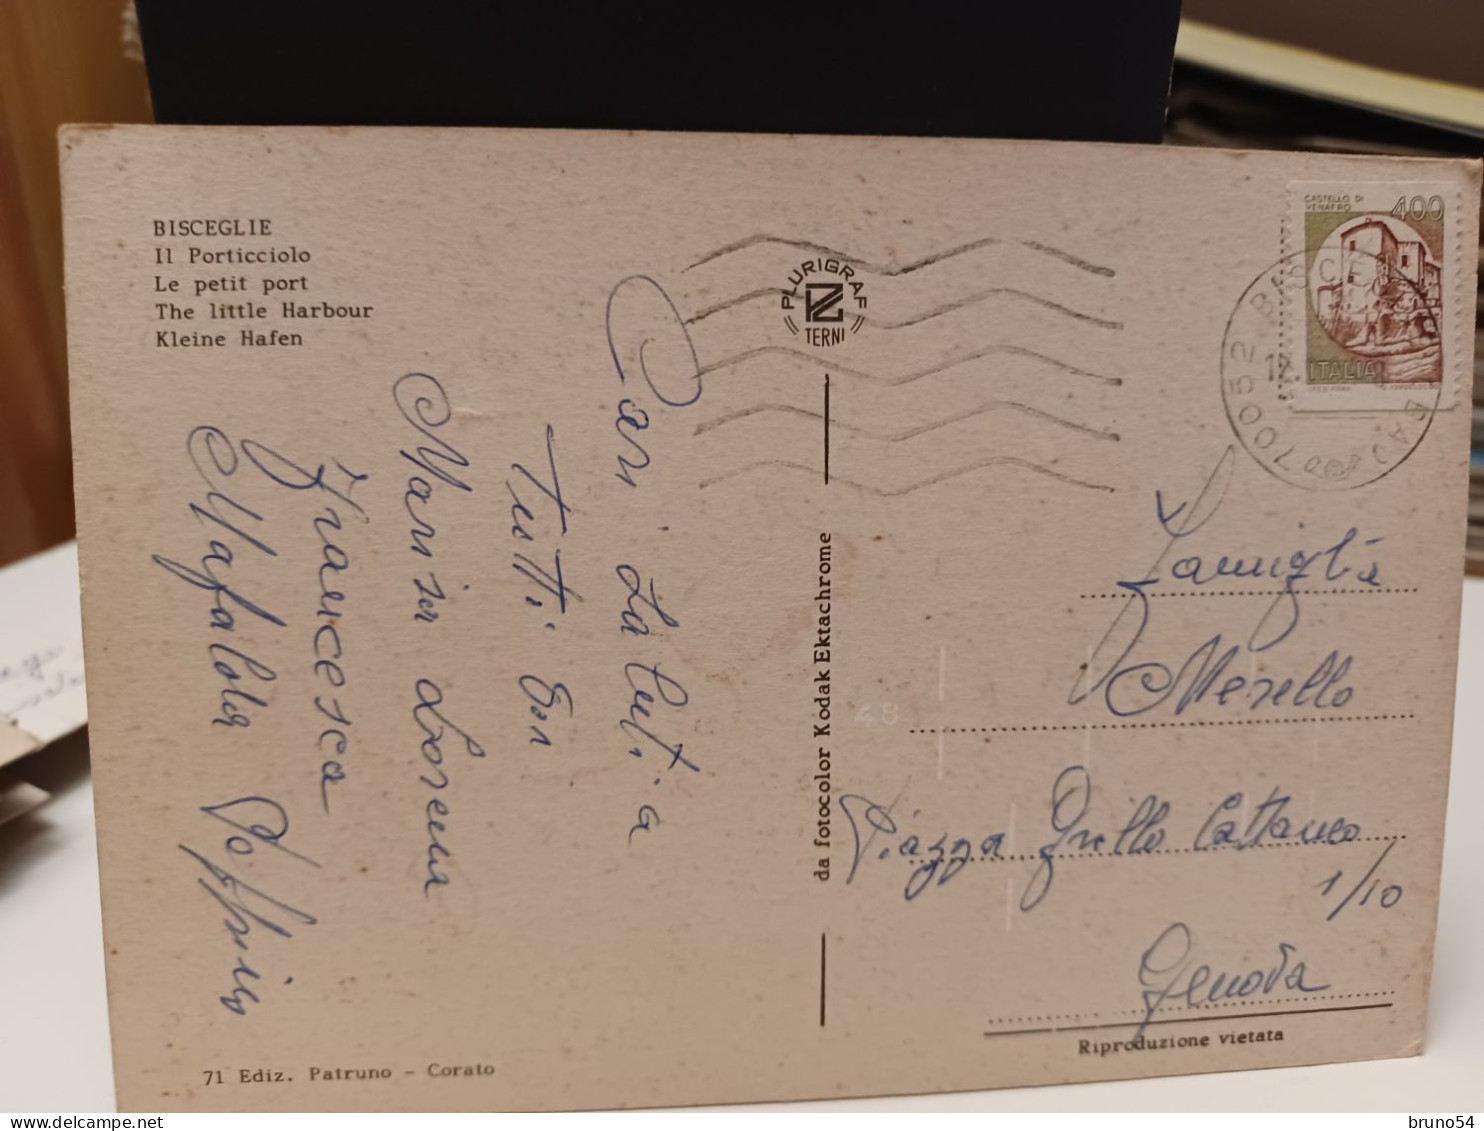 BISCEGLIE
Il Porticciolo
Le petit port
The little Harbour
Kleine Hafen
Cari Saluti a
Tutti Voi
Marisa Lorena
Francesca
Mafalda
71 Ediz. Patruno - Corato
PLURIGRAF
TERNI
da fotocolor Kodak Ektachrome
CASTELLO DI
VENAFRO
400
ITALIA
70052 BISCEGLIE BA
Famiglia
Merello
Piazza Grillo Cattaneo
1/10
Genova
Riproduzione vietata
48
delcampe.net
bruno54